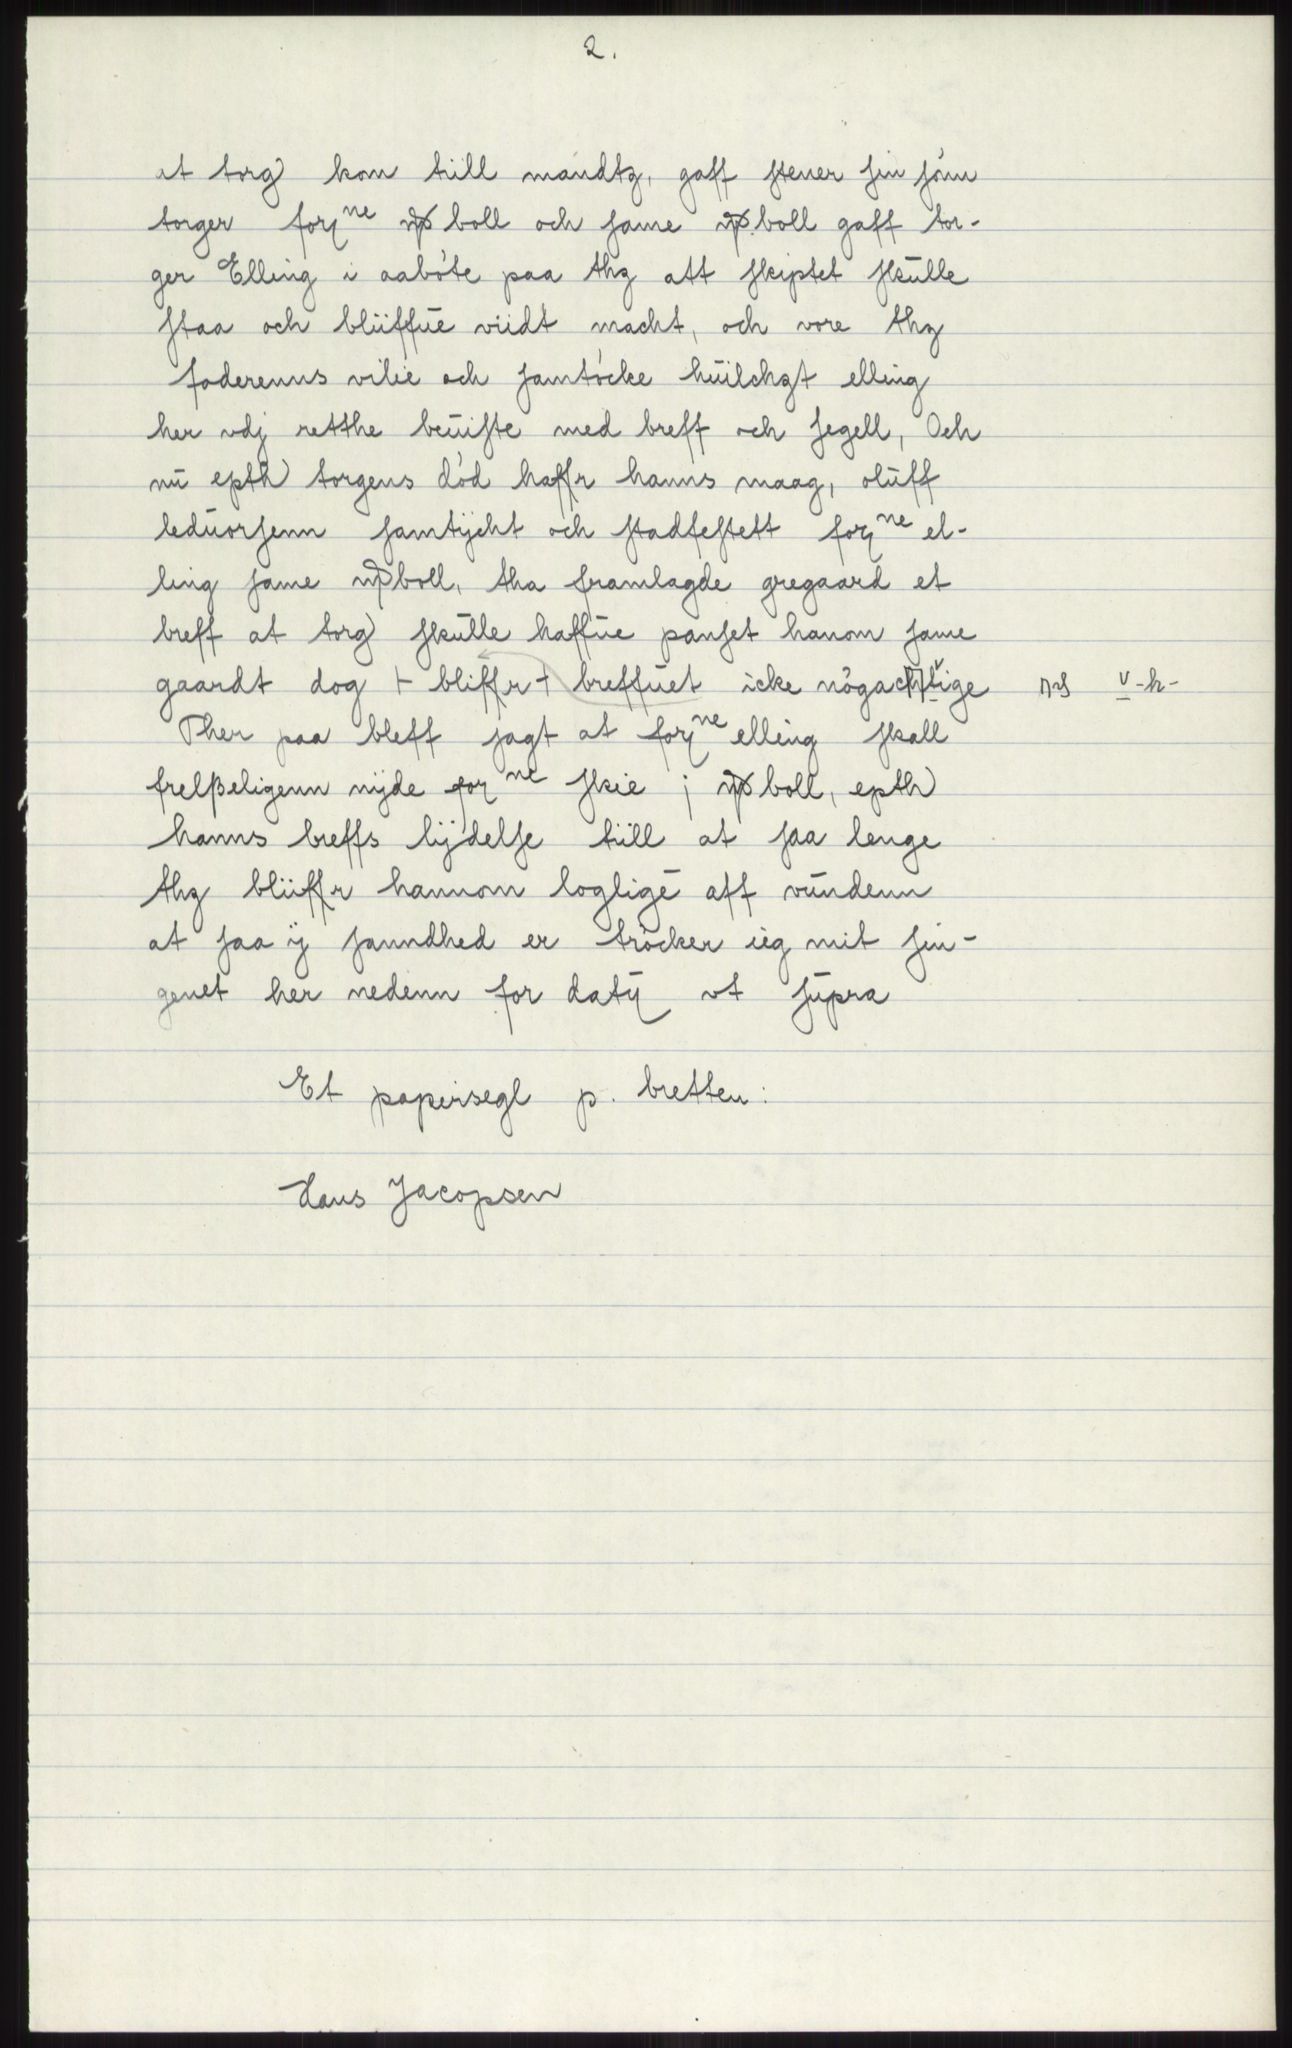 2.
at torg) kom tiill mandtz, gaff stener sin sónn
torger forne wpboll och same wp.boll gaff tor-
ger Elling i aabóte paa thz att skiptet skulle
staa och bliiffue viidt macht, och vore thz
faderenns vilie och samtócke huilchzt elling
her vdj retthe beuiste med breff och segell, Och
nu epth) torgens dód haffr hanns maag, oluff
leduorsenn samtÿcht och stadfestett forne el-
ling same wpboll, tha framlagde gregaard et
breff at torg) skulle haffue panset hanom same
gaardt dog + bliffr + breffuet icke nógachtige v-h-
Ther paa bleff sagt at forne elling skall
frelßeligenn nÿde forne skie j wpboll, epth)
hanns breffs lÿdelse tiill at saa lenge
thz bliiffr hannom loglige aff vundenn
at saa ÿ sanndhed er trócker ieg mit sin-
genet her nedenn for datÿ vt supra
Et papirsegl p. bretten:
Hans Jacopsen